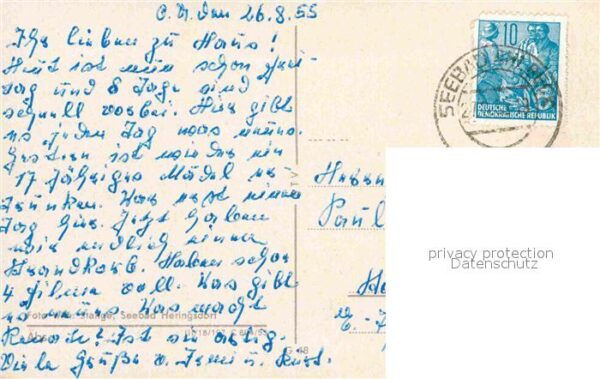 O. U. den 26.8.55
Ihr lieben zu Haus!
Heut ist nun schon Frei-
tag und 8 Tage sind
schnell vorbei. Hier gibt
es jeden Tag was neues.
Gestern ist wieder ein
17 jähriges Mädel er-
trunken. Das erst einen
Tag hier. Jetzt haben
wir endlich einen
Strandkorb. Haben schon
4 Filme voll. Was gibt
es neues? Was macht
Renate? Ist sie artig.
Viele Grüße v. Irmi u. Kurt.
Foto: Stange, Seebad Heringsdorf
SEEBAD
10
DEUTSCHE
DEMOKRATISCHE REPUBLIK
Paul
privacy protection
Datenschutz